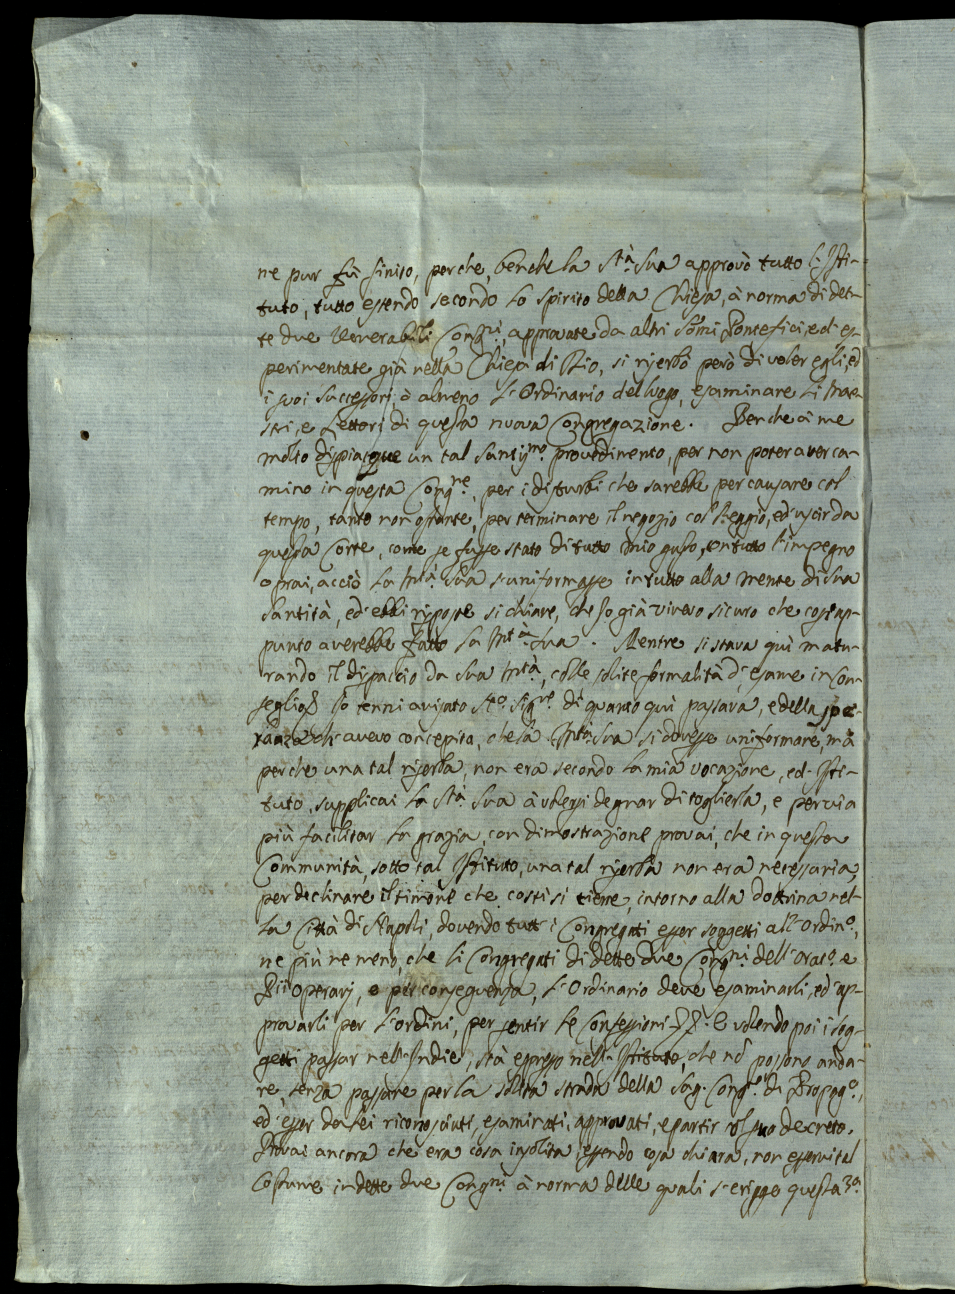 ne pur fù finito, perche, benche la S.tà Sua approvò tutto l'Isti-
tuto, tutto essendo secondo lo spirito della Chiesa, à norma di det-
te due Venerabili Cong.ni, approvate da altri Sommi Pontefici, ed es-
perimentate già nella Chiesa di Dio, si riserbò però di voler egli, ed
i suoi Successori, ò almeno l'Ordinario del luogo, esaminare li Maes-
stri, e Lettori di questa nuova Congregazione. Benche à me
molto dispiacque un tal Santiss.mo provedimento, per non poter aver ca-
mino in questa Cong.ne, per i disturbi che sarebbe per causare col
tempo, tanto non ostante, per terminare il negozio col Seggio, ed uscir da
questa Corte, come se fusse stato di tutto mio gusto, con tutto l'impegno
oprai, acciò la M.tà Sua s'uniformasse in tutto alla mente di Sua
Santità, ed ebbi risposte si chiare, che Io già vivevo sicuro che così ap-
punto averebbe fatto la M.tà Sua. Mentre si stava quì matu-
rando il dispaccio da Sua M.tà, colle solite formalità d'esame in Con-
seglio Io tenni avisato S.to Sig.re di quanto quì passava, e della spe-
ranza ch'avevo concepita, che la M.tà Sua si dovesse uniformare, mà
perche una tal riserba, non era secondo la mia vocazione, ed Isti-
tuto, supplicai la S.tà Sua à volersi degnar di toglierla, e per via
più facilitar la grazia, con dimostrazione provai, che in questa
Communità, sotto tal Istituto, una tal riserba non era necessaria
per declinare il timore che costì si tiene, intorno alla dottrina nel-
la Città di Napoli, dovendo tutt'i Congregati esser soggetti all'Ordin.o,
ne più ne meno, che li Congregati di dette due Cong.ni dell'Orat.o e
Pii Operarj, e per conseguenza, l'Ordinario deve esaminarli, ed ap-
provarli per l'ordini, per sentir le Confessioni E volendo poi i sog-
getti passar nell'Indie, stà espresso nell'Istituto, che nō possono anda-
re, senza passare per la solita strada della Sag. Cong.ne di Propag.o,
ed esser da lei riconosciuti, esaminati, approvati, e partir col suo decreto.
Provai ancora che era cosa insolita, essendo cosa chiara, non esservi tal
Costume in dette due Cong.ni à norma delle quali s'erigge questa 3.a